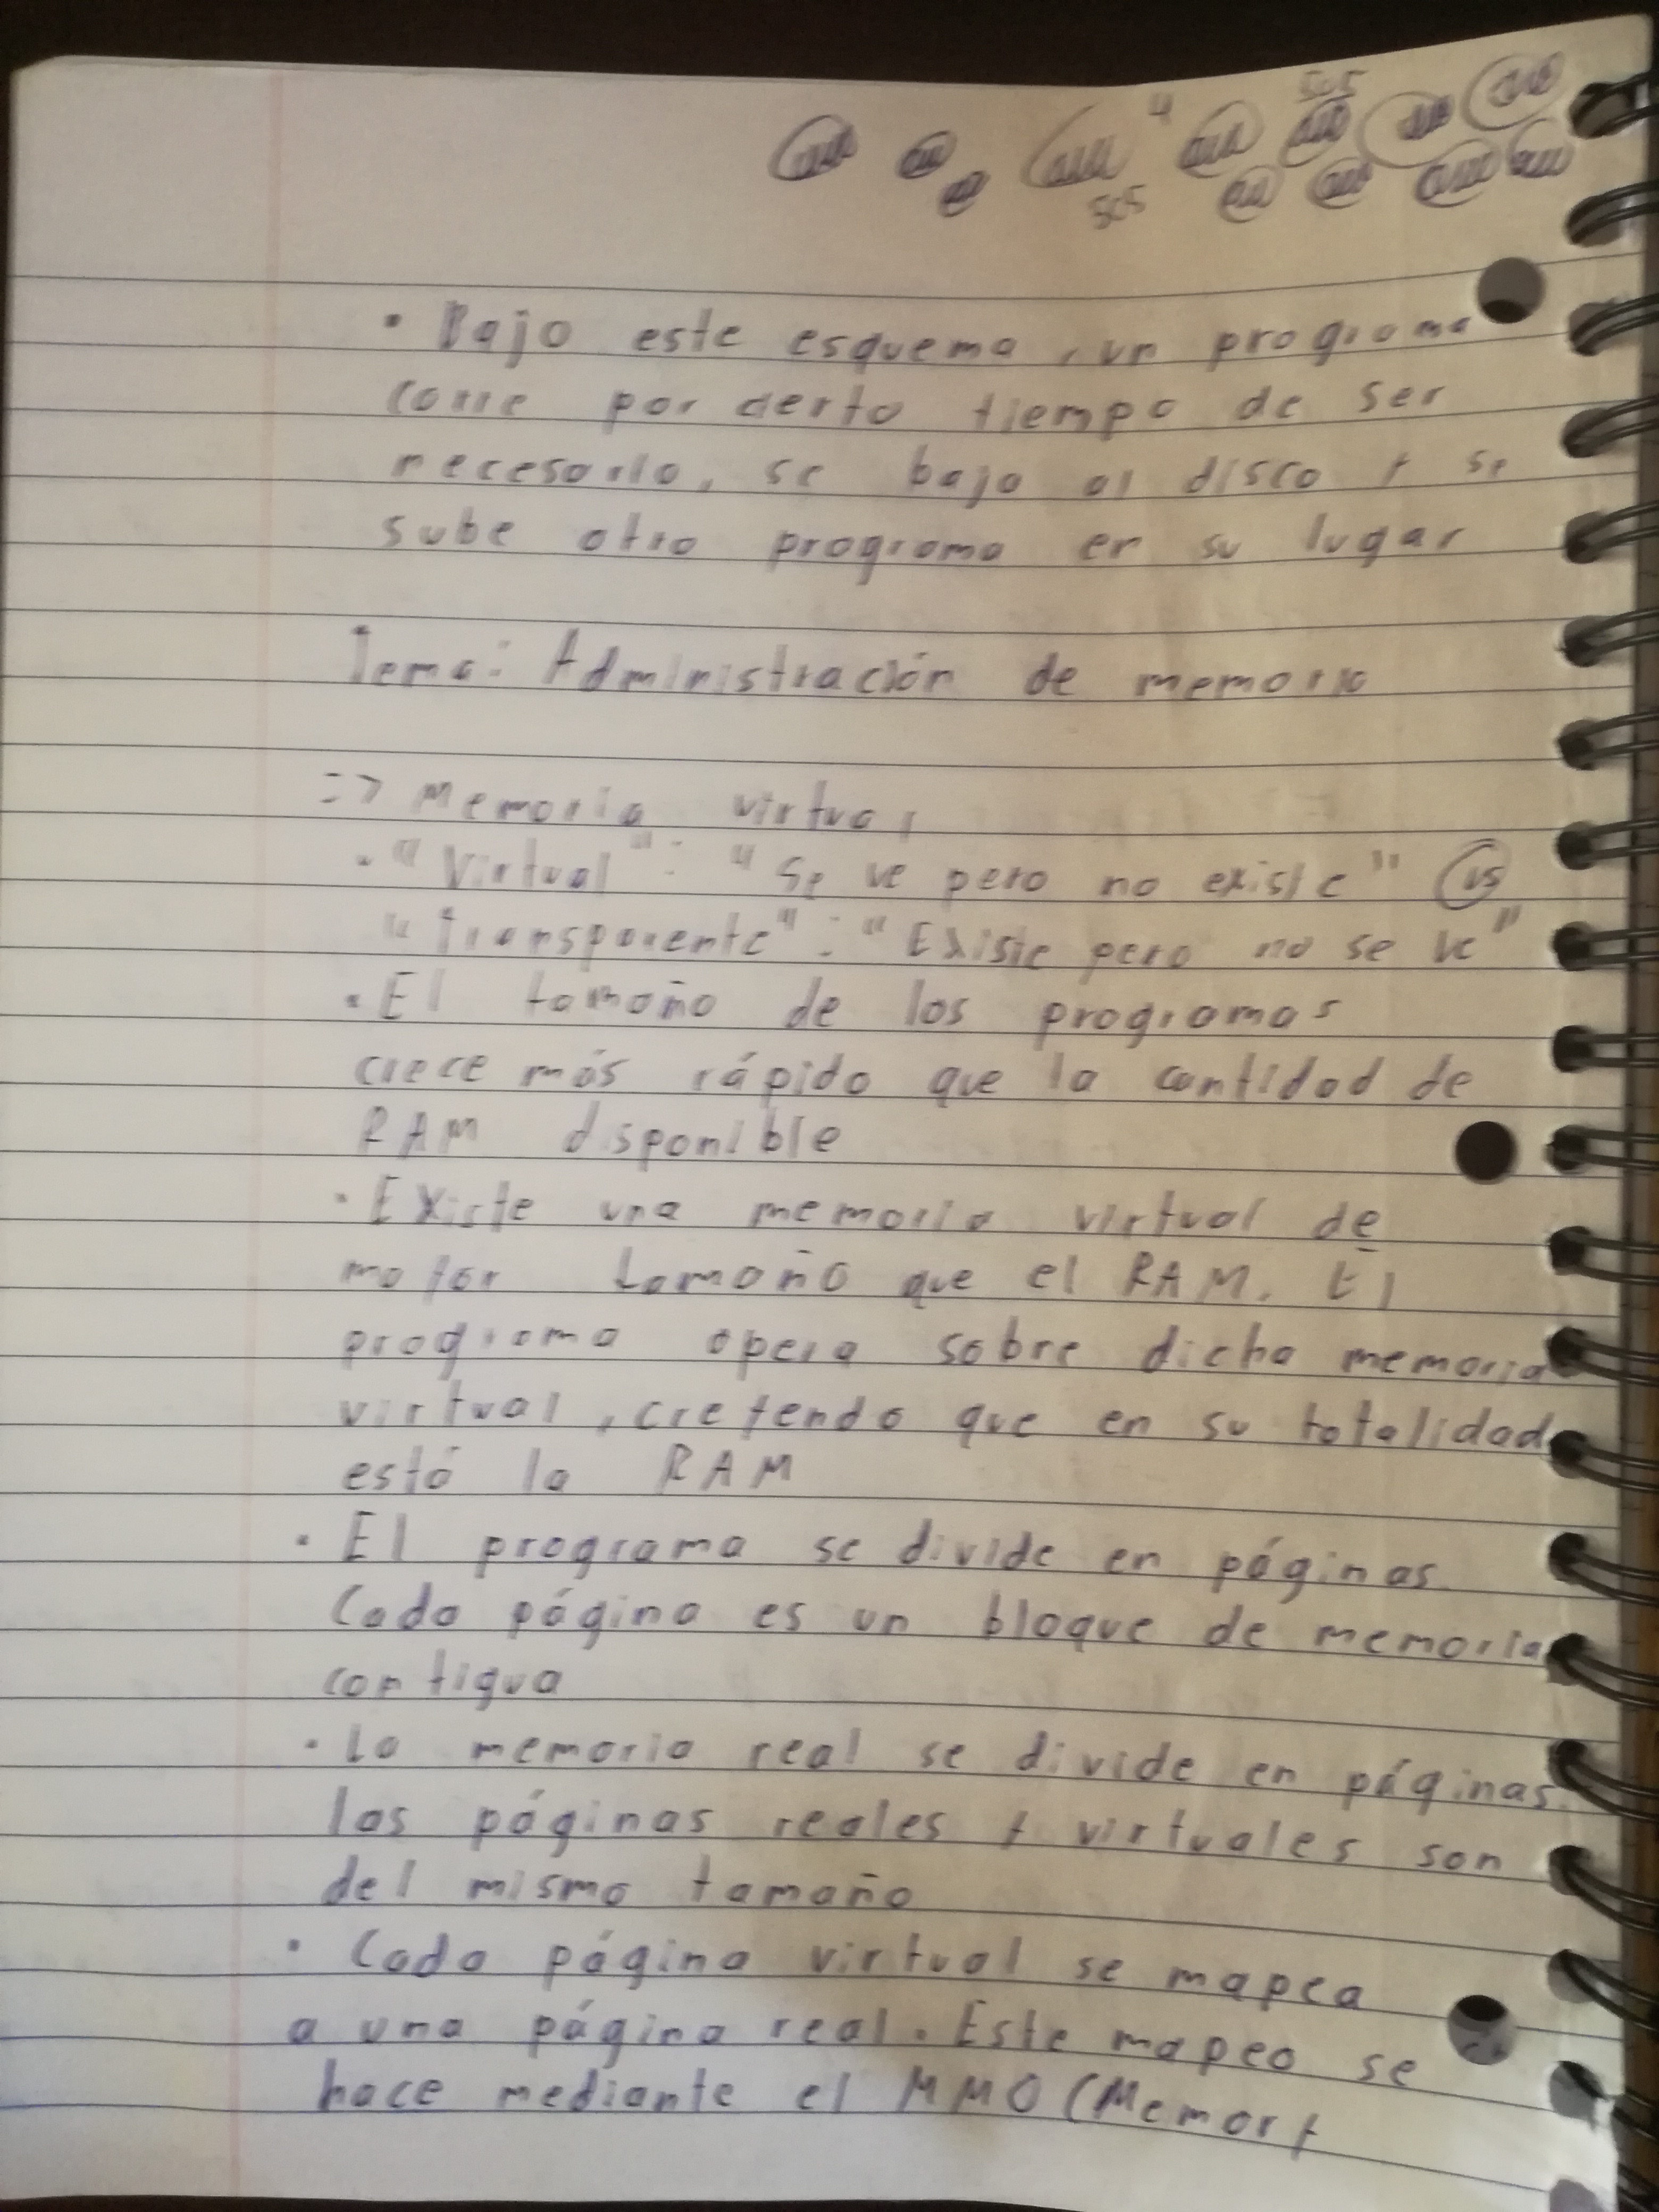 • Bajo este esquema, un programa
corre por cierto tiempo de ser
necesario, se baja al disco y se
sube otro programa en su lugar
Tema: Administración de memoria
=> Memoria virtual
• "Virtual": "Se ve pero no existe" vs
"Transparente": "Existe pero no se ve"
• El tamaño de los programas
crece más rápido que la cantidad de
RAM disponible
• Existe una memoria virtual de
mayor tamaño que el RAM. El
programa opera sobre dicha memoria
virtual, creyendo que en su totalidad
está la RAM
• El programa se divide en páginas.
Cada página es un bloque de memoria
contigua
• La memoria real se divide en páginas.
las páginas reales y virtuales son
del mismo tamaño
• Cada página virtual se mapea
a una página real. Este mapeo se
hace mediante el MMO (Memory